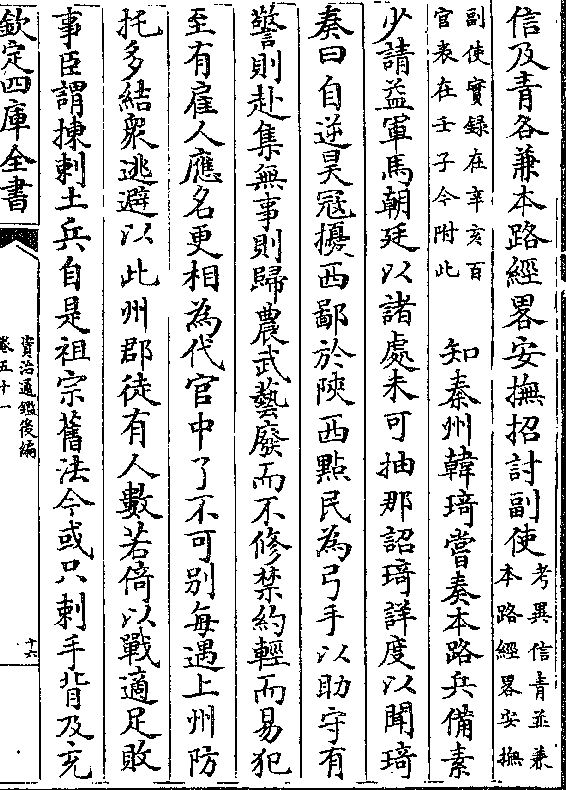 信及青各兼本路經畧安撫招討副使考異信青並兼本路經畧安撫
副使實録在辛亥百官表在壬子今附此　知秦州韓琦嘗奏本路兵備素
少請益軍馬朝廷以諸處未可抽那詔琦詳度以聞琦
奏曰自逆昊冦擾西鄙於陜西點民為弓手以助守有
警則赴集無事則歸農武藝廢而不修禁約輕而易犯
至有雇人應名更相為代官中了不可别每遇上州防
托多結衆逃避以此州郡徒有人數若倚以戰適足敗
事臣謂揀刺土兵自是祖宗舊法今或只刺手背及充
欽定四庫全書
資治通鑑後編
卷五十一
十六